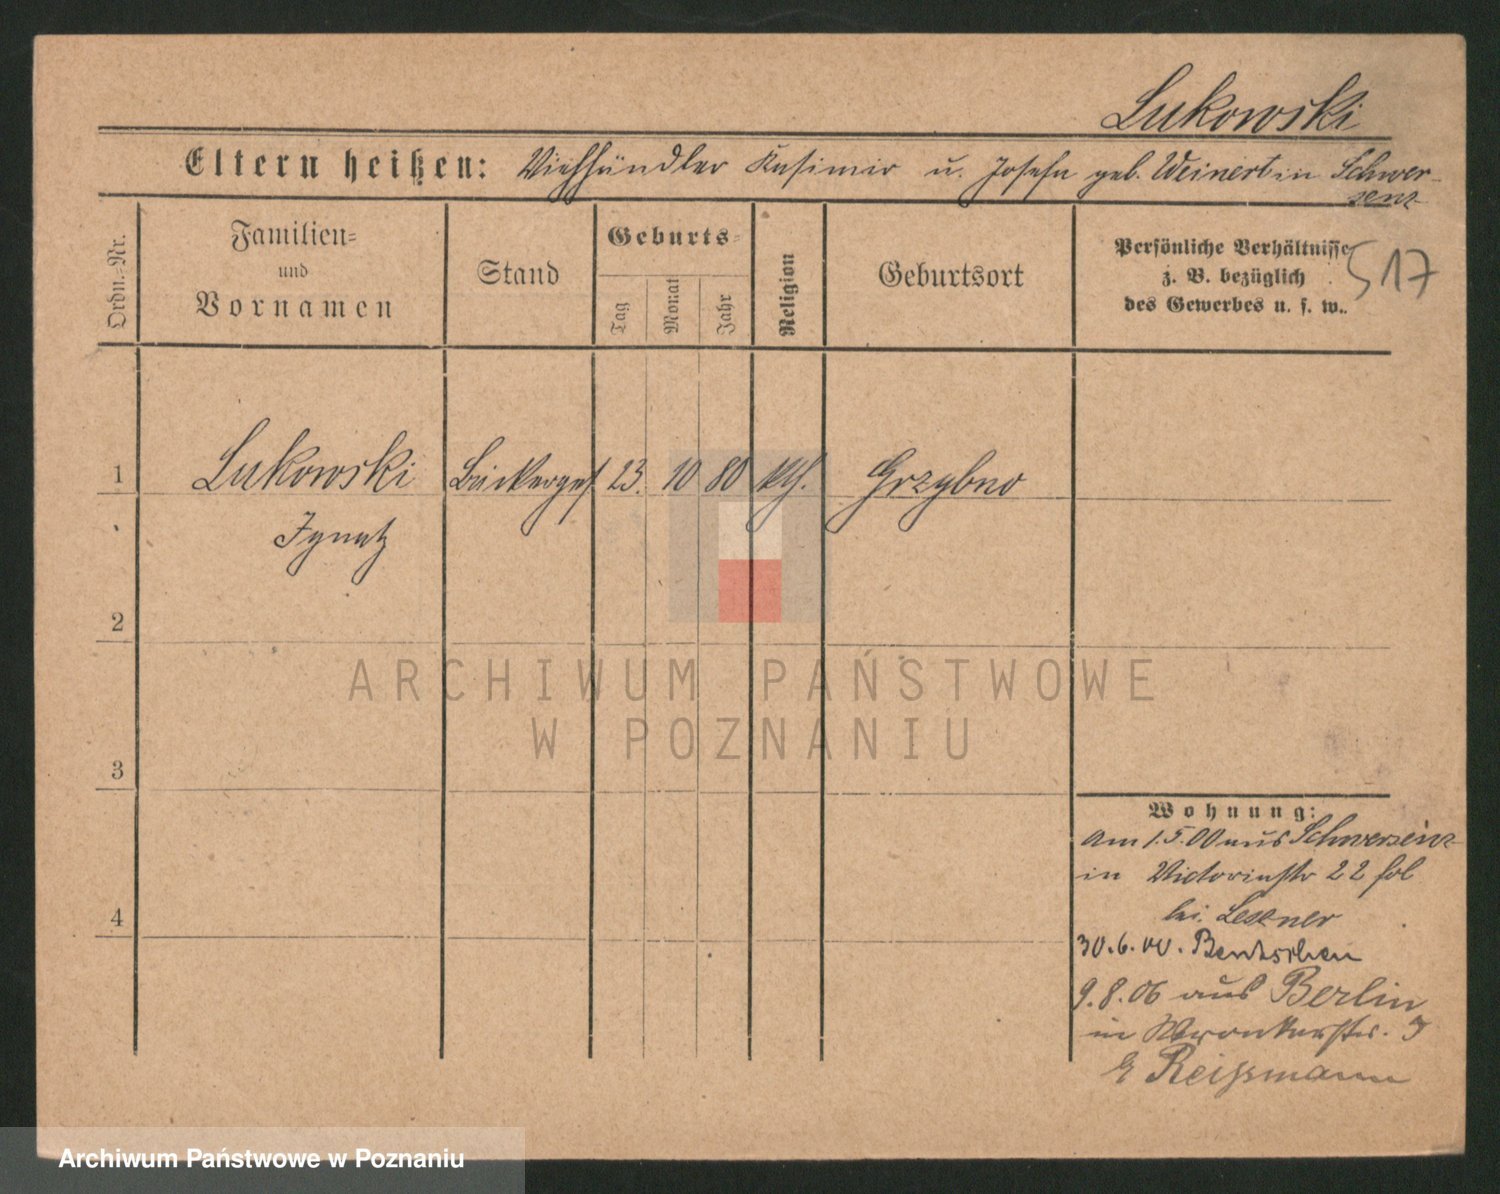 Lukowski
Eltern heißen: Viehhändler Kasimir u. Josefa geb. Weinert in Schwer-
senz
Ordn.-Nr.
Familien-
und
Vornamen
Stand
Geburts-
Tag
Monat
Jahr
Religion
Geburtsort
Persönliche Verhältnisse
z. B. bezüglich
des Gewerbes u. s. w..
517
1
Lukowski
Bäckerges.
23.
10
80
kth.
Grzybno
Ignatz
2
ARCHIWUM PAŃSTWOWE
W POZNANIU
3
Wohnung:
am 1.5.00 aus Schwersenz
in Victoriastr 22 fol
bei Lessner
30.6.00. Bentschen
9.8.06 aus Berlin
in Wronkerstr.
Reißmann
4
Archiwum Państwowe w Poznaniu